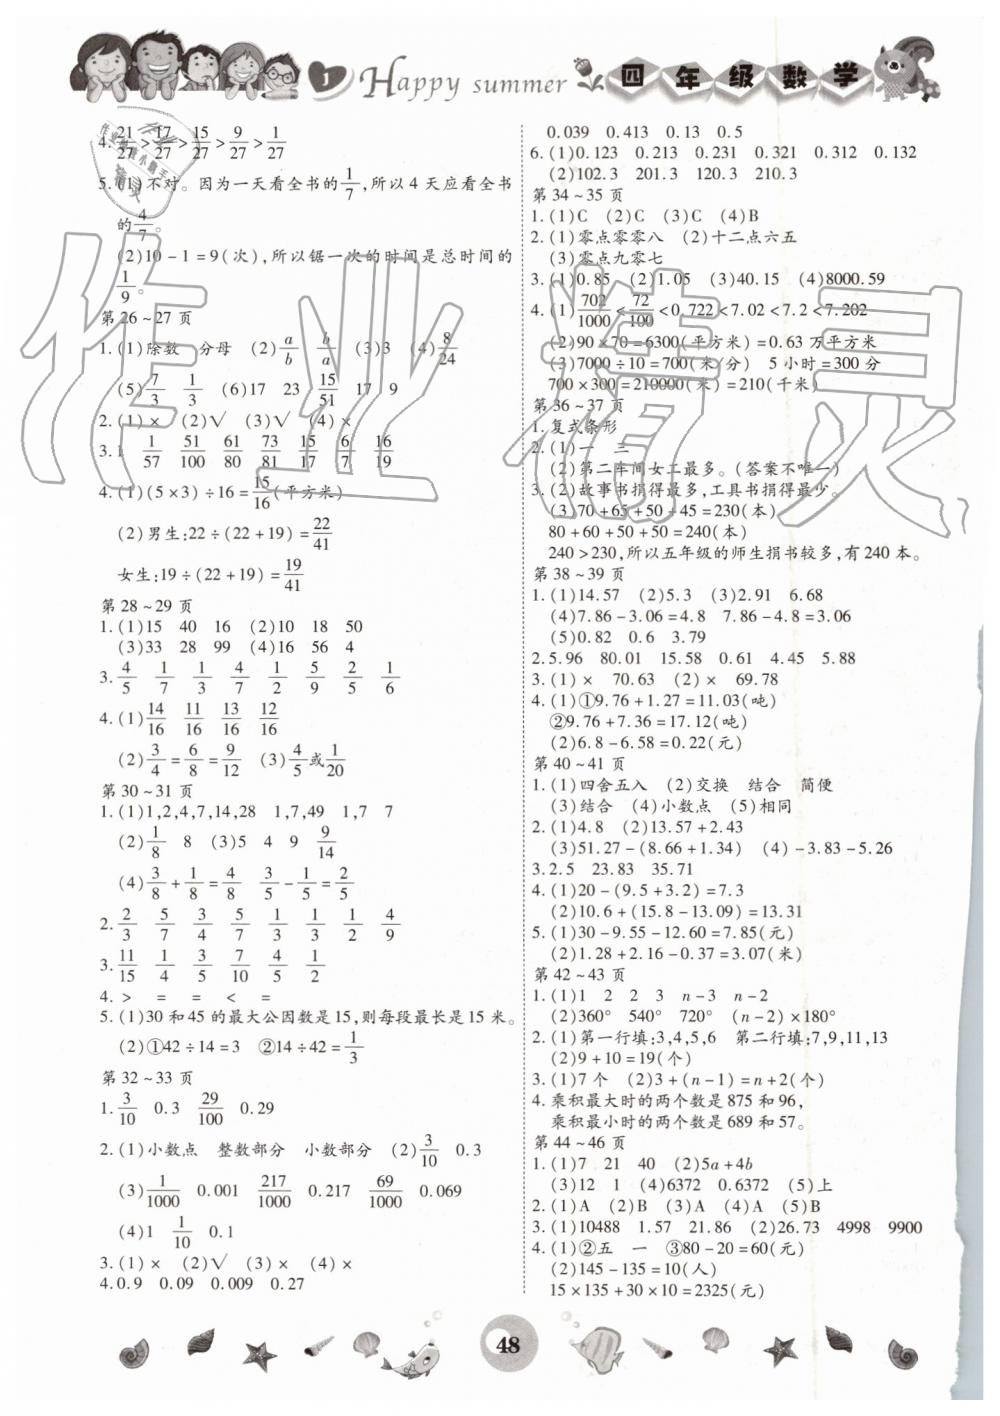 1 Happy summer 四年级数学
4. 21/27 > 17/27 > 15/27 > 9/27 > 1/27
5. (1)不对。因为一天看全书的1/7,所以4天应看全书
的4/7。
(2)10-1=9(次),所以锯一次的时间是总时间的
1/9。
第26~27页
1. (1)除数 分母 (2)a/b b/a (3)3 (4)8/24
(5)7/3 1/3 (6)17 23 15/51 17 9
2. (1)× (2)√ (3)√ (4)×
3. 1 1/57 51/100 61/80 73/81 15/17 6/7 16/19
4. (1)(5×3)÷16=15/16(平方米)
(2)男生:22÷(22+19)=22/41
女生:19÷(22+19)=19/41
第28~29页
1. (1)15 40 16 (2)10 18 50
(3)33 28 99 (4)16 56 4
3. 4/5 1/7 1/3 4/7 1/2 5/9 2/5 1/6
4. (1)14/16 11/16 13/16 12/16
(2)3/4=6/8=9/12 (3)4/5或1/20
第30~31页
1. (1)1,2,4,7,14,28 1,7,49 1,7 7
(2)1/8 8 (3)5 4 9 9/14
(4)3/8+1/8=4/8 3/5-1/5=2/5
2. 2/3 5/7 3/4 5/7 1/3 1/3 1/2 4/9
3. 11/15 1/4 3/5 7/10 4/5 1/2
4. > = = < =
5. (1)30和45的最大公因数是15,则每段最长是15米。
(2)①42÷14=3 ②14÷42=1/3
第32~33页
1. 3/10 0.3 29/100 0.29
2. (1)小数点 整数部分 小数部分 (2)3/10 0.3
(3)1/1000 0.001 217/1000 0.217 69/1000 0.069
(4)1 1/10 0.1
3. (1)× (2)√ (3)× (4)×
4. 0.9 0.09 0.009 0.27
0.039 0.413 0.13 0.5
6. (1)0.123 0.213 0.231 0.321 0.312 0.132
(2)102.3 201.3 120.3 210.3
第34~35页
1. (1)C (2)C (3)C (4)B
2. (1)零点零零八 (2)十二点六五
(3)零点九零七
3. (1)0.85 (2)1.05 (3)40.15 (4)8000.59
4. (1)702/1000<72/100<0.722<7.02<7.2<7.202
(2)90×70=6300(平方米)=0.63万平方米
(3)7000÷10=700(米/分) 5小时=300分
700×300=210000(米)=210(千米)
第36~37页
1. 复式条形
2. (1)一 三
(2)第二车间女工最多。(答案不唯一)
3. (2)故事书捐得最多,工具书捐得最少。
(3)70+65+50+45=230(本)
80+60+50+50=240(本)
240>230,所以五年级的师生捐书较多,有240本。
第38~39页
1. (1)14.57 (2)5.3 (3)2.91 6.68
(4)7.86-3.06=4.8 7.86-4.8=3.06
(5)0.82 0.6 3.79
2. 5.96 80.01 15.58 0.61 4.45 5.88
3. (1)× 70.63 (2)× 69.78
4. (1)①9.76+1.27=11.03(吨)
②9.76+7.36=17.12(吨)
(2)6.8-6.58=0.22(元)
第40~41页
1. (1)四舍五入 (2)交换 结合 简便
(3)结合 (4)小数点 (5)相同
2. (1)4.8 (2)13.57+2.43
(3)51.27-(8.66+1.34) (4)-3.83-5.26
3. 2.5 23.83 35.71
4. (1)20-(9.5+3.2)=7.3
(2)10.6+(15.8-13.09)=13.31
5. (1)30-9.55-12.60=7.85(元)
(2)1.28+2.16-0.37=3.07(米)
第42~43页
1. (1)1 2 2 3 n-3 n-2
(2)360° 540° 720° (n-2)×180°
2. (1)第一行填:3,4,5,6 第二行填:7,9,11,13
(2)9+10=19(个)
3. (1)7个 (2)3+(n-1)=n+2(个)
4. 乘积最大时的两个数是875和96,
乘积最小时的两个数是689和57。
第44~46页
1. (1)7 21 40 (2)5a+4b
(3)12 1 (4)6372 0.6372 (5)上
2. (1)A (2)B (3)A (4)A (5)B
3. (1)10488 1.57 21.86 (2)26.73 4998 9900
4. (1)②五 一 ③80-20=60(元)
(2)145-135=10(人)
15×135+30×10=2325(元)
48
作业精灵